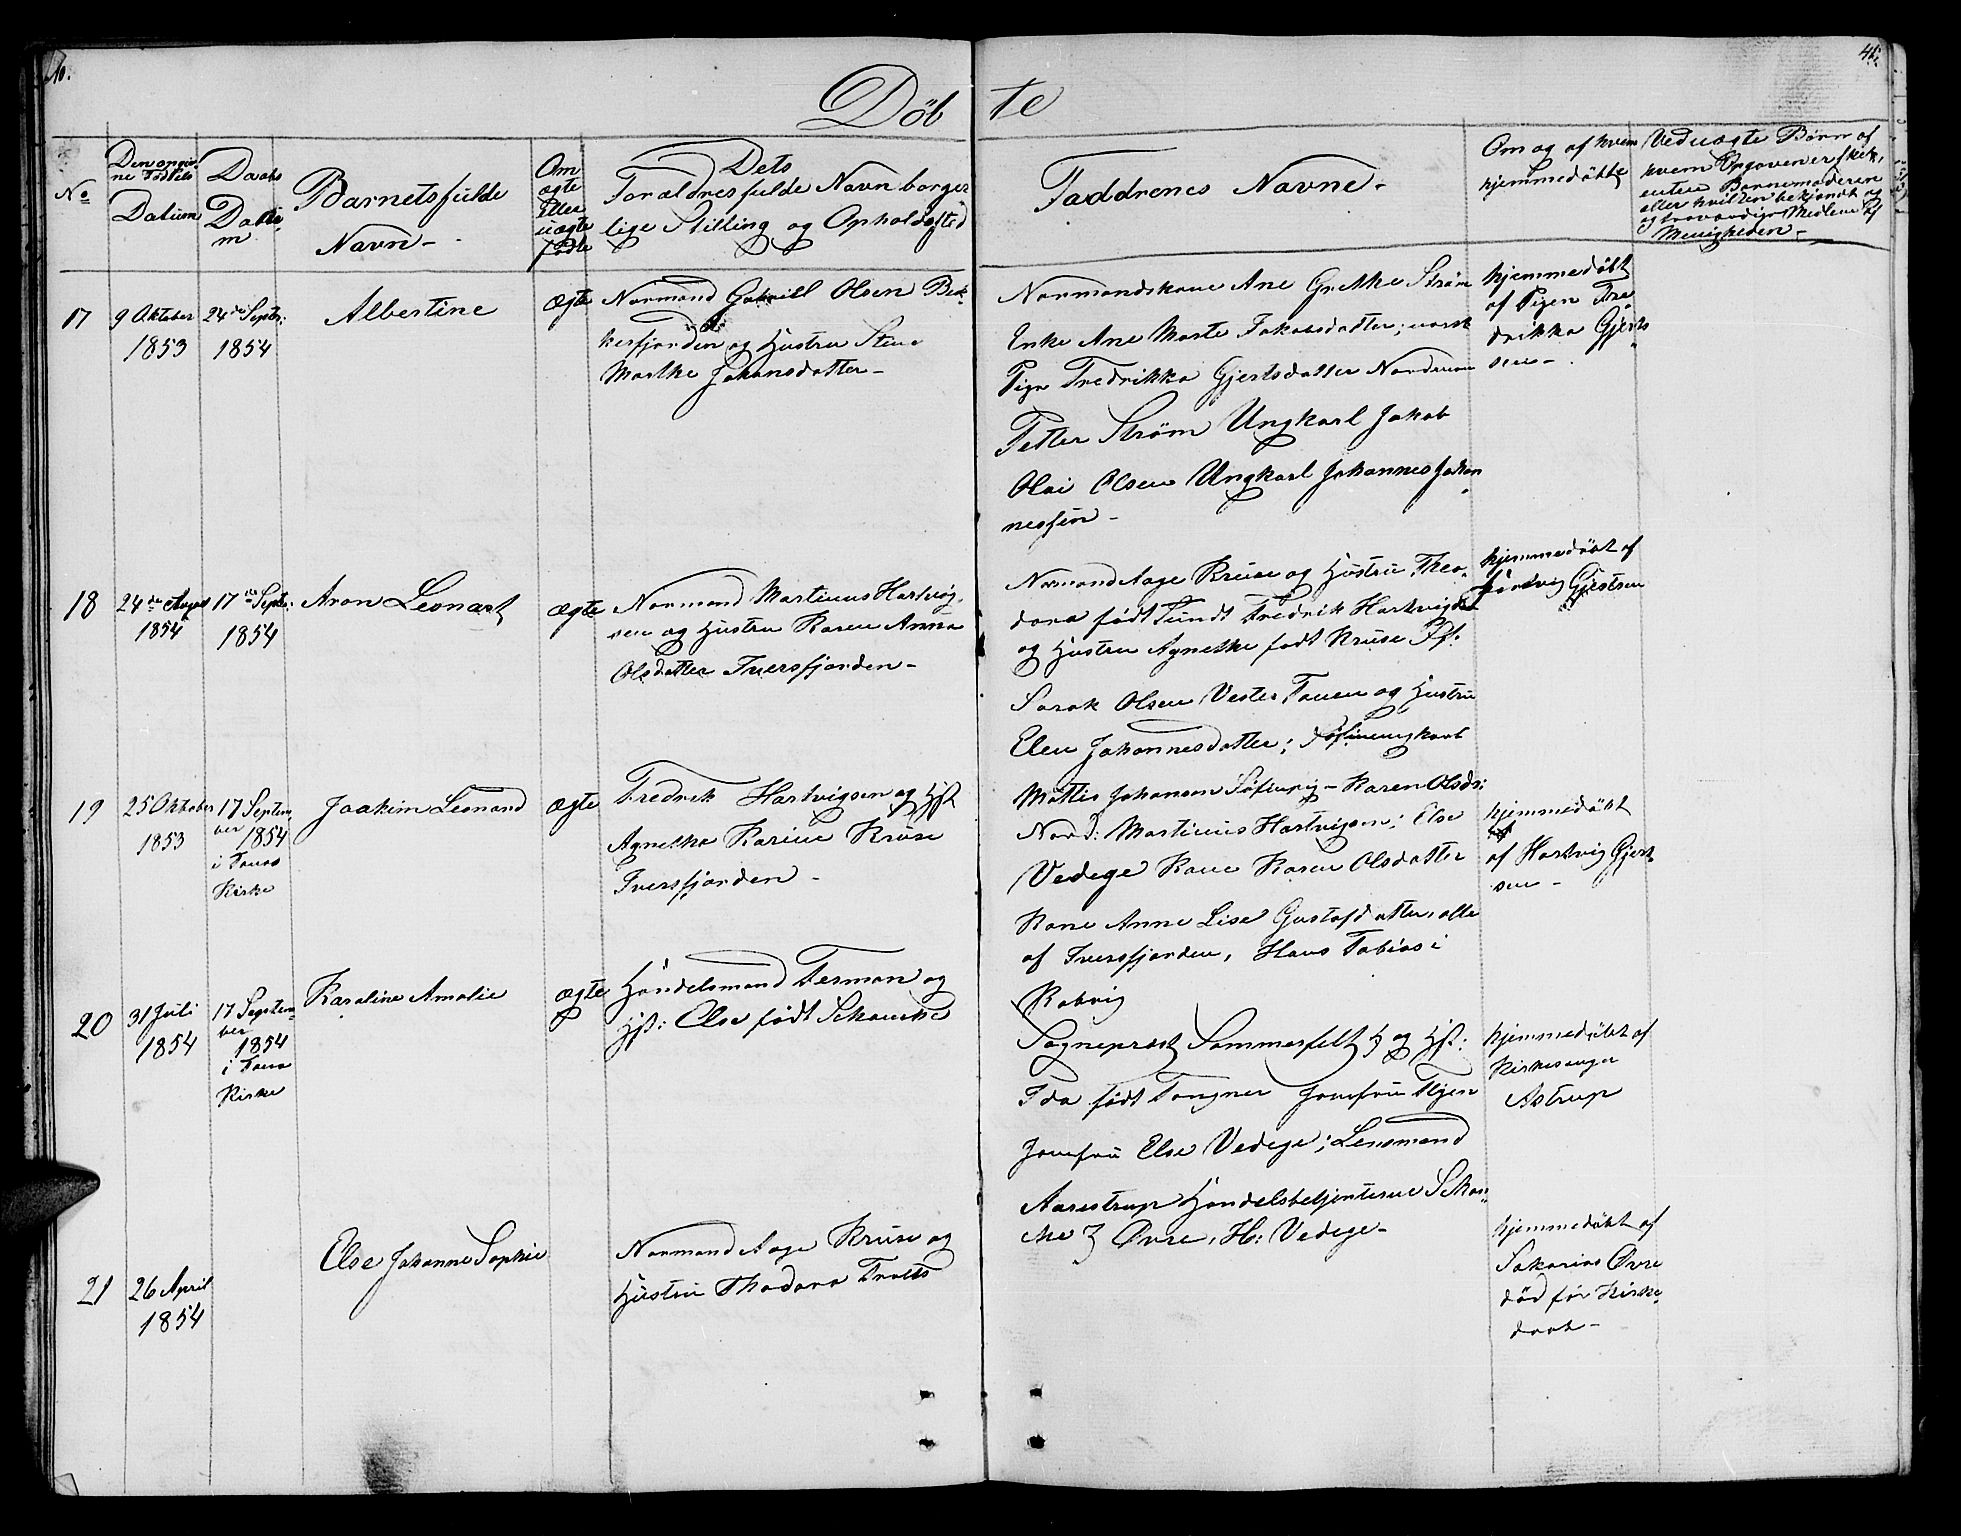 Döbte
No
Den angivne Fødsels Datum
Daabs Datum
Barnets fulde Navn -
Om ægte Eller uægte fødte
Dets Forældres fulde Navn borgerlige Stilling og Opholdssted
Faddrenes Navne -
Om og af hvem hjemmedøbt
Ved uægte Børn af hvem Opgaven er sket, enten Barnemoderen eller hvilken bekjendt og troværdigt Medlem af Menigheden -
17
9 Oktober
1853
24de Septr:
1854
Albertine
Ægte
Normand Gabriell Olsen Bek-
kerfjorden og Hustru Stine
Marthe Johansdatter -
Normandskone Ane Grethe Strøm
Enke Ane Marte Jakobsdatter;
Pige Fredrikke Gjertsdatter Nordman
Petter Strøm Ungkarl Jakob
Olai Olsen Ungkarl Johannes Johan
nessen -
hjemmedøbt
af Pigen Fre
drikke Gjerts
sen -
18
24de August
1854
17de Septr:
1854
Aron Leonart
ægte
Normand Martinus Hartvig-
sen og Hustru Karen Anna
Olsdatter Tversfjorden -
Normand Aage Kruse og Hustru Theo-
dora født Fredrik Hartvigsen
og Hustru Agnethe født Kruse
Sarak Olsen Vester Tanen og Hustru
Elen Johannesdatter; ungkarl
Mattis Johansen - Karen Olsdr:
hjemmedøbt af
Gjertsen
19
25 Oktober
1853
17 Septem
ber 1854
i Tanas
Kirke
Joakim Leonard
ægte
Fredrik Hartvigsen og Hst
Agnethe Karine Kruse
Tversfjorden -
Nord: Martinus Hartvigsen; Else
Vedege Kone Karen Olsdatter
Kone Anne Lise Gustafdatter, alle
af Tversfjorden, Hans Tobias i
hjemmedøbt
af Hartvig Gjert
sen -
20
31 Juli
1854
17 Septem
ber 1854
i Tana
Kirke
Karoline Amalie
ægte
Handelsmand Ferman og
Hst: Else født Schanche
Sogneprest Sommerfelt og Hst:
Ida født Jomfru
Jomfru Else Vedege; Lensmand
Aarestrup Handelsbetjenterne Schan
che Øvre, H: Vedege -
hjemmedøbt af
Kirkesanger
Astrup
21
26 April
1854
Else Johanne Sophie
Normand Aage Kruse og
Hustru Thodora
hjemmedøbt af
Sakarias Øvre
død før Kirke
daab -